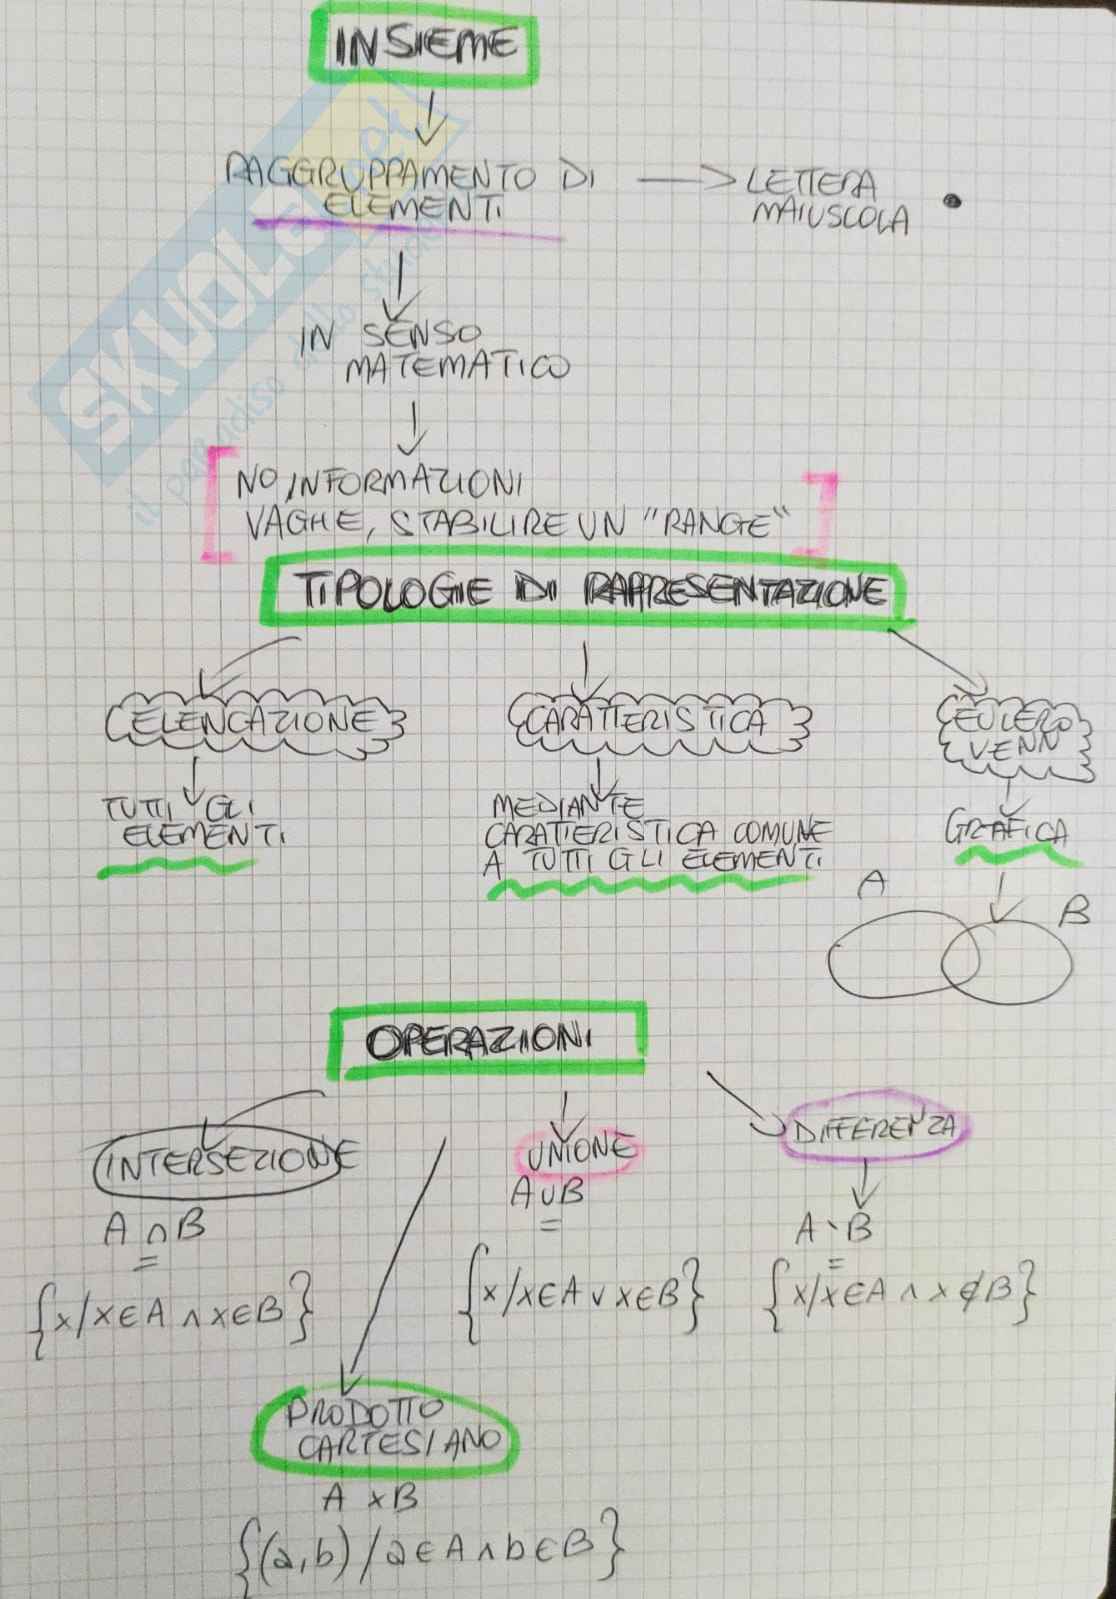 INSIEME
RAGGRUPPAMENTO DI
ELEMENTI
LETTERA
MAIUSCOLA
IN SENSO
MATEMATICO
NO INFORMAZIONI
VAGHE, STABILIRE UN "RANGE"
TIPOLOGIE DI RAPPRESENTAZIONE
ELENCAZIONE
TUTTI GLI
ELEMENTI
CARATTERISTICA
MEDIANTE
CARATTERISTICA COMUNE
A TUTTI GLI ELEMENTI
EULERO
VENN
GRAFICA
A
B
OPERAZIONI
INTERSEZIONE
A ∩ B
=
{x/x∈A ∧ x∈B}
UNIONE
A∪B
=
{x/x∈A ∨ x∈B}
DIFFERENZA
A \ B
=
{x/x∈A ∧ x∉B}
PRODOTTO
CARTESIANO
A × B
{(a,b) / a∈A ∧ b∈B}
SKUOLA.net
il paradiso dello studente